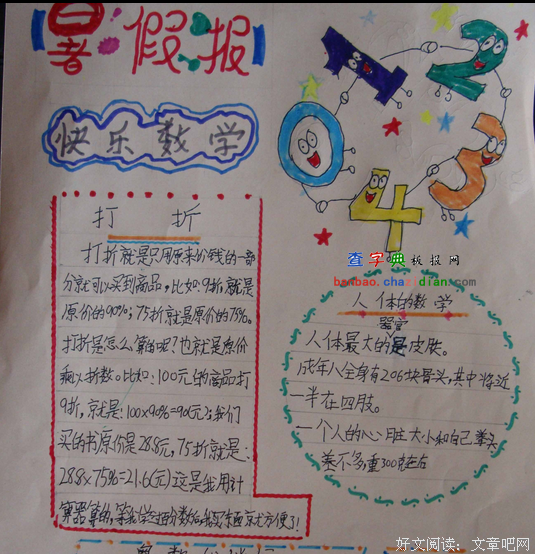 暑假报
快乐数学
0 1 2 3 4
打 折
打折就是只用原来价钱的一部
分就可以买到商品,比如:9折就是
原价的90%;75折就是原价的75%。
打折是怎么算的呢?也就是原价
乘以折数。比如:100元的商品打
9折,就是:100×90%=90元;我们
买的书原价是28.8元,75折就是:
28.8×75%=21.6(元)这是我用计
算器算的,等我学过分数
方便了!
查字典板报网
banbao.chazidian.com
人体的数学
器官
人体最大的是皮肤。
成年人全身有206块骨头,其中将近
一半在四肢。
一个人的心脏大小和自己拳头
差不多重300克左右
好文阅读:文章吧网